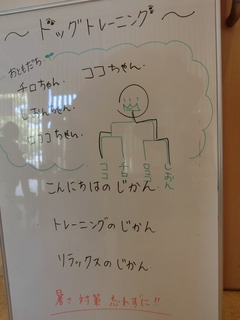 ～ドッグトレーニング～
おともだち
チロちゃん. ココちゃん.
しおんちゃん.
ロココちゃん.
ココ チロ ロココ しおん
こんにちはのじかん
トレーニングのじかん
リラックスのじかん
暑さ対策 忘れずに!!